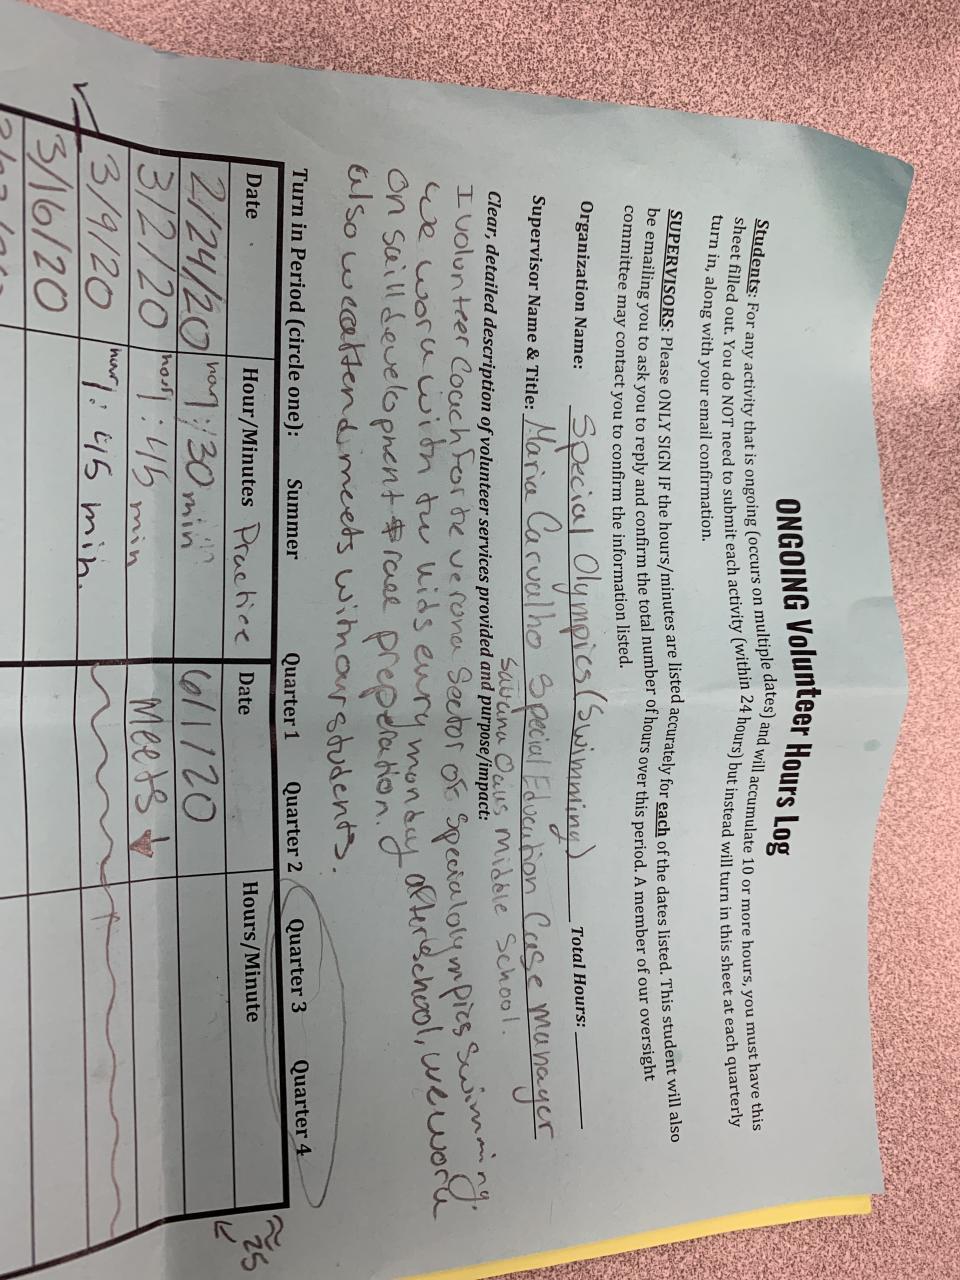 ONGOING Volunteer Hours Log
Students: For any activity that is ongoing (occurs on multiple dates) and will accumulate 10 or more hours, you must have this
sheet filled out. You do NOT need to submit each activity (within 24 hours) but instead will turn in this sheet at each quarterly
turn in, along with your email confirmation.
SUPERVISORS: Please ONLY SIGN IF the hours/minutes are listed accurately for each of the dates listed. This student will also
be emailing you to ask you to reply and confirm the total number of hours over this period. A member of our oversight
committee may contact you to confirm the information listed.
Organization Name: Special Olympics (Swimming) Total Hours:
Supervisor Name & Title: Maria Carvalho Special Education Case manager
Clear, detailed description of volunteer services provided and purpose/impact: Middle School.
I volunteer Coach for the verona Sector of special olympics swimming.
we work with the kids every monday after school, we work
on skill development & race preperation.
also we attend meets with our students.
Turn in Period (circle one): Summer Quarter 1 Quarter 2 Quarter 3 Quarter 4
≈ 25
Date Hour/Minutes Practice Date Hours/Minute
2/24/20 30 min 6/1/20
3/2/20 : 45 min Meets ↓
3/9/20 : 45 min.
3/16/20